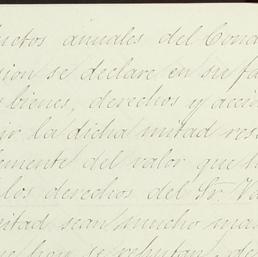 uctos anuales del Cond
sion se declare en su fa
s bienes, derechos y acci
ir la dicha mitad res
lemente del valor que t
los derechos del Sr. Va
mitad sean mucho ma
ue han se reputan, de